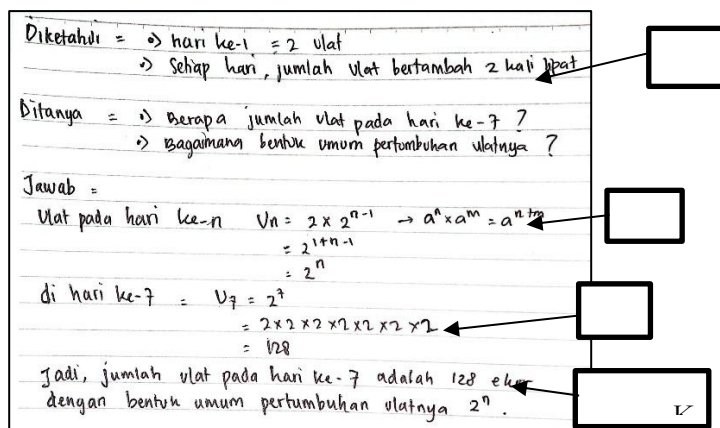 Diketahui = •) hari ke-1 = 2 ulat
•) Setiap hari, jumlah ulat bertambah 2 kali lipat
Ditanya = •) Berapa jumlah ulat pada hari ke-7 ?
•) Bagaimana bentuk umum pertumbuhan ulatnya ?
Jawab =
Ulat pada hari ke-n Un = 2 × 2ⁿ⁻¹ → aⁿ × aᵐ = aⁿ⁺ᵐ
= 2¹⁺ⁿ⁻¹
= 2ⁿ
di hari ke-7 = U₇ = 2⁷
= 2×2×2×2×2×2×2
= 128
Jadi, jumlah ulat pada hari ke-7 adalah 128 ekor
dengan bentuk umum pertumbuhan ulatnya 2ⁿ.